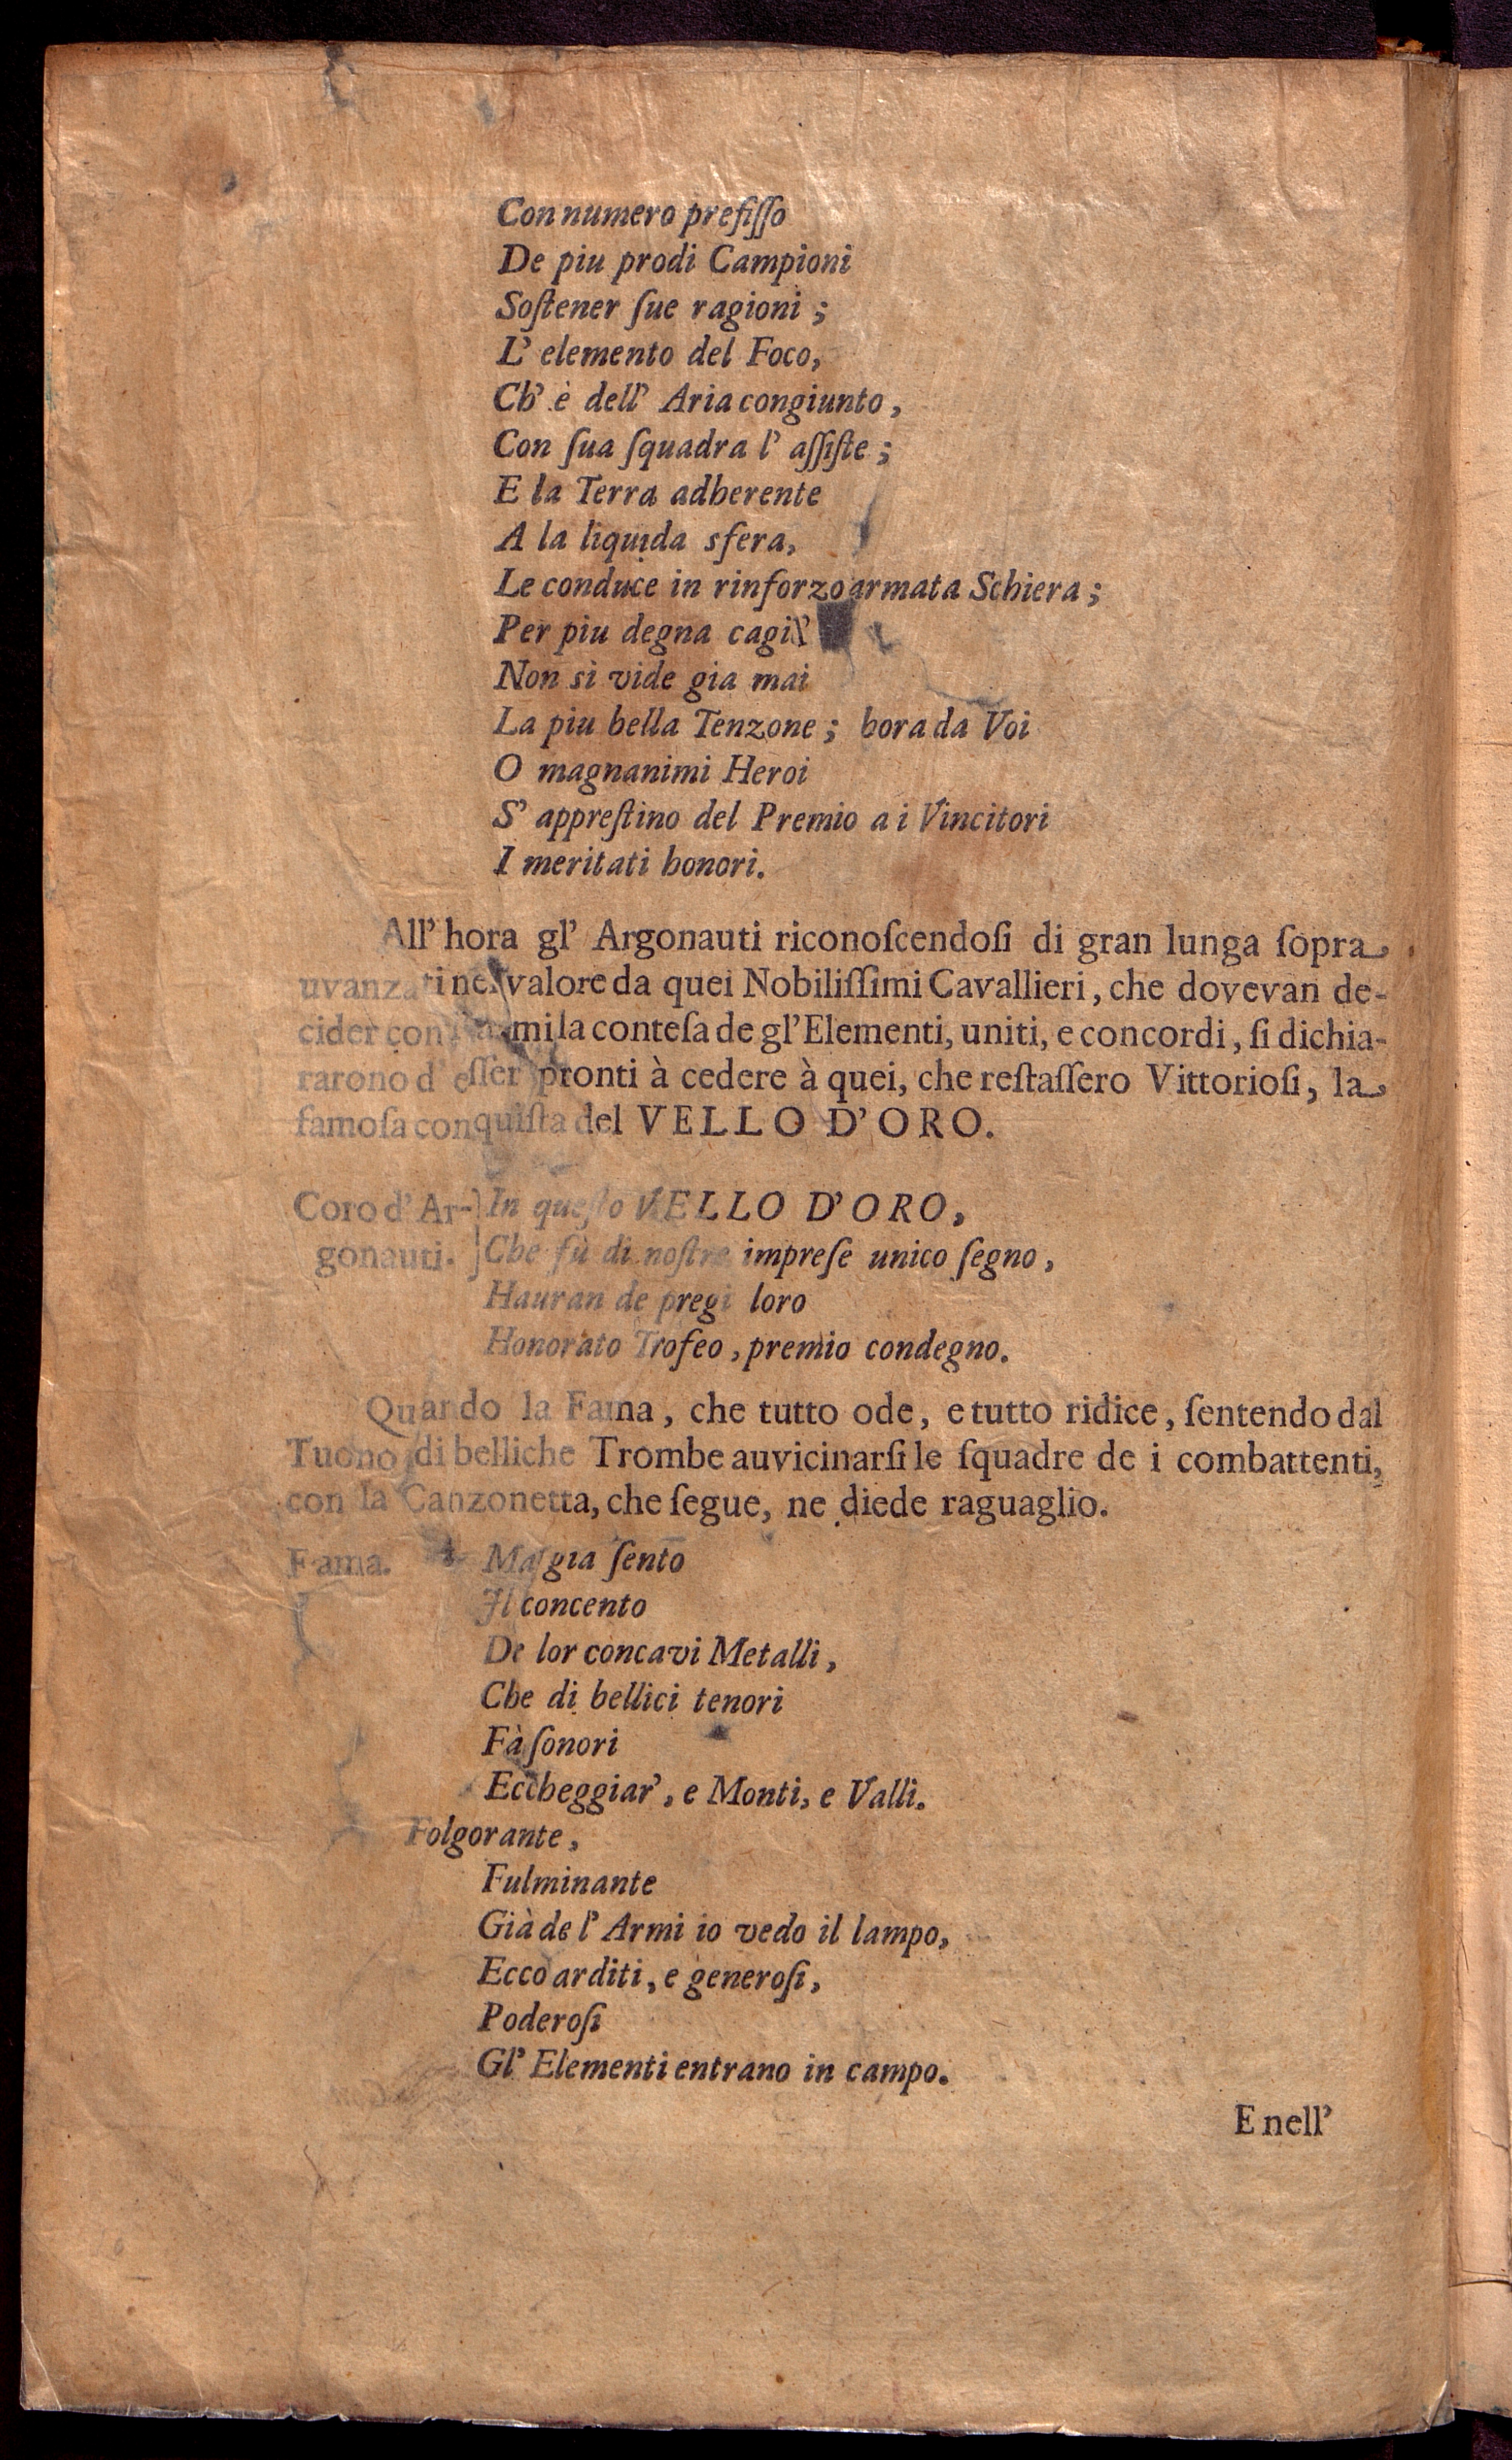 Con numero prefiſſo
De piu prodi Campioni
Soſtener ſue ragioni ;
L' elemento del Foco,
Ch' è dell' Aria congiunto ,
Con ſua ſquadra l' aſſiſte ;
E la Terra adherente
A la liquida sfera,
Le conduce in rinforzo armata Schiera ;
Per piu degna
Non si vide gia mai
La piu bella Tenzone ; hora da Voi
O magnanimi Heroi
S' appreſtino del Premio a i Vincitori
I meritati honori.
All' hora gl' Argonauti riconoſcendoſi di gran lunga ſopra
uvanzati nel valore da quei Nobiliſſimi Cavallieri, che dovevan de-
cider con l'armi la conteſa de gl'Elementi, uniti, e concordi, ſi dichia-
rarono d' eſſer pronti à cedere à quei, che reſtaſſero Vittorioſi, la
famoſa conquiſta del VELLO D'ORO.
Coro d' Ar-} In queſto VELLO D'ORO,
gonauti. } Che fù di noſtre impreſe unico ſegno ,
Hauran de pregi loro
Honorato Trofeo , premio condegno.
Quando la Fama , che tutto ode, e tutto ridice, ſentendo dal
Tuono di belliche Trombe auvicinarſi le ſquadre de i combattenti,
con la Canzonetta, che ſegue, ne diede raguaglio.
Fama. Ma gia ſento
Il concento
De lor concavi Metalli ,
Che di bellici tenori
Fà ſonori
Eccheggiar' , e Monti, e Valli.
Folgorante ,
Fulminante
Già de l' Armi io vedo il lampo,
Ecco arditi, e generoſi,
Poderoſi
Gl' Elementi entrano in campo.
E nell'